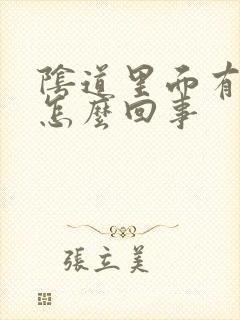 陰道里面有
怎麼回事
張立美